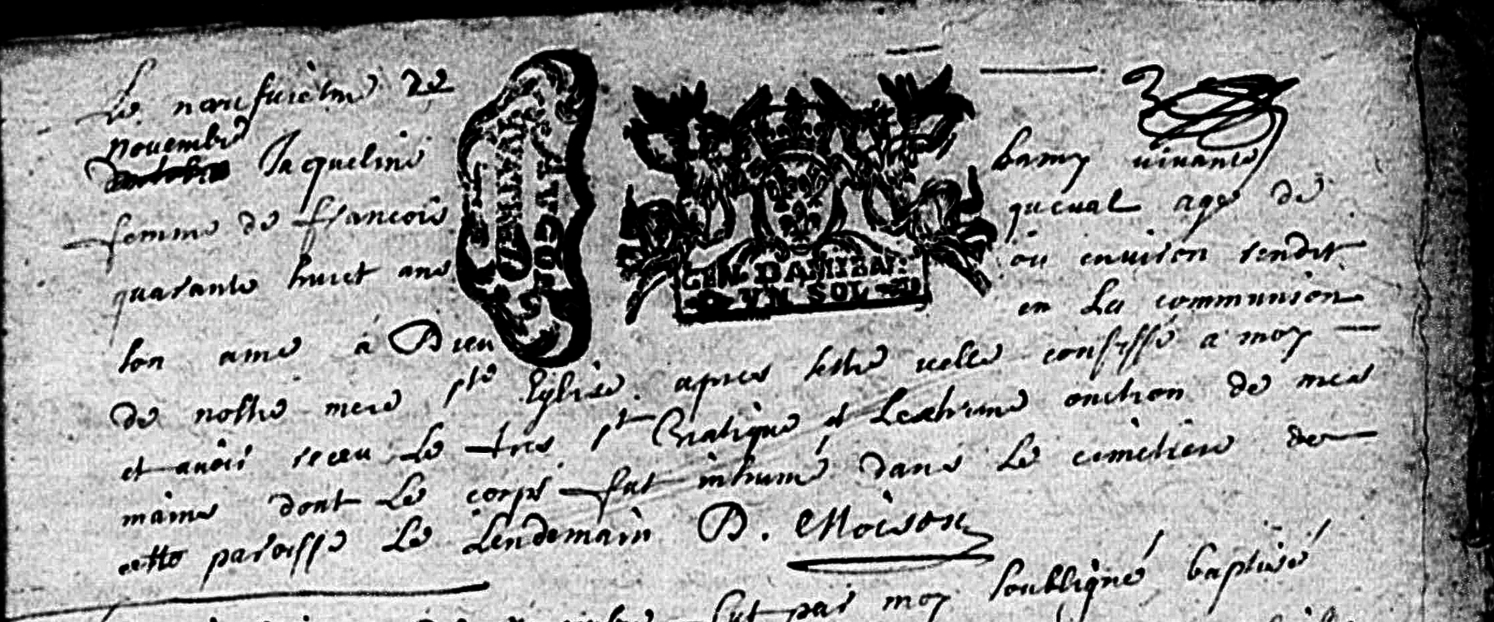 Le neufuième de
novembre
octobre Jacqueline bamy vivante
femme de francois queual agé de
quarante huict ans ou environ rendit
son ame à Dieu en La communion
de nostre mere ste Eglise apres sestre celle confessé a moy
et avoir receu Le tres st Viatique et Lextreme onction de mes
mains dont Le corps fut inhumé dans Le cimetiere de
cette paroisse Le Lendemain D. Moison
GEN. D'AMIENS
VN SOL
fut par moy soubsigné baptisé